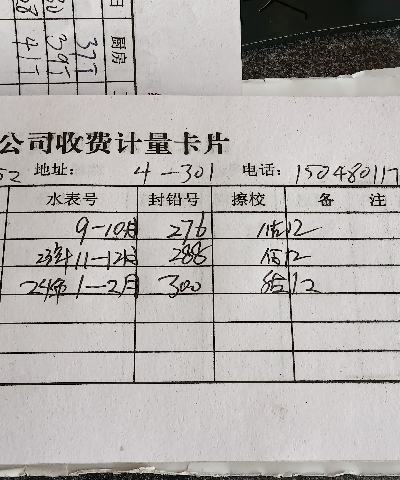 厨房
377
397
417
公司收费计量卡片
52 地址: 4-301 电话: 150480117
水表号 封铅号 擦校 备 注
9-10月 276 估12
23年11-12月 288 估12
24年1-2月 300 估12